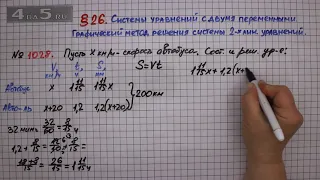 4a5.ru
§26. Системы уравнений с двумя переменными.
Графический метод решения системы 2-х лин. уравнений.
№ 1028. Пусть x км/ч - скорость автобуса. Сост. и реш. ур-е:
V, км/ч t, ч S, км
S=Vt
Автобус x 1 11/15 1 11/15 x
Авто-ль x+20 1,2 1,2(x+20)
} 200 км
1 11/15 x + 1,2(x+
32 мин 32/60 = 8/15 ч
1,2 + 8/15 = 12/10 + 8/15 =
= 18+8/15 = 26/15 = 1 11/15 ч